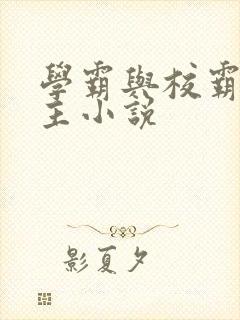 學霸與校霸
主小說
影夏夕